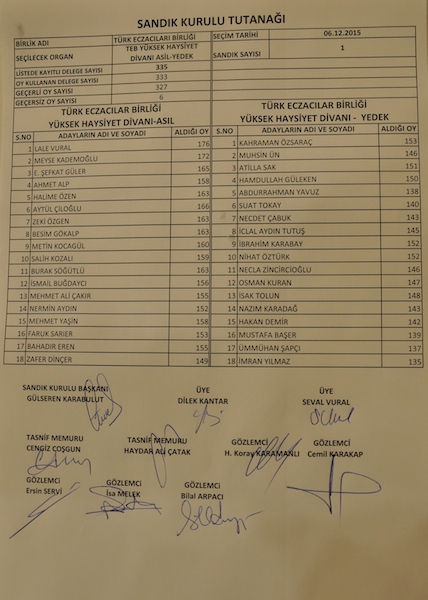 SANDIK KURULU TUTANAĞI
BİRLİK ADI TÜRK ECZACILARI BİRLİĞİ SEÇİM TARİHİ 06.12.2015
SEÇİLECEK ORGAN TEB YÜKSEK HAYSİYET DİVANI ASİL-YEDEK SANDIK SAYISI 1
LİSTEDE KAYITLI DELEGE SAYISI 335
OY KULLANAN DELEGE SAYISI 333
GEÇERLİ OY SAYISI 327
GEÇERSİZ OY SAYISI 6
TÜRK ECZACILAR BİRLİĞİ TÜRK ECZACILAR BİRLİĞİ
YÜKSEK HAYSİYET DİVANI-ASIL YÜKSEK HAYSİYET DİVANI - YEDEK
S.NO ADAYLARIN ADI VE SOYADI ALDIĞI OY S.NO ADAYLARIN ADI VE SOYADI ALDIĞI OY
1 LALE VURAL 176 1 KAHRAMAN ÖZSARAÇ 153
2 MEYSE KADEMOĞLU 172 2 MUHSİN ÜN 146
3 E. ŞEFKAT GÜLER 165 3 ATİLLA SAK 151
4 AHMET ALP 158 4 HAMDULLAH GÜLEKEN 150
5 HALİME ÖZEN 163 5 ABDURRAHMAN YAVUZ 138
6 AYTÜL ÇİLOĞLU 166 6 SUAT TOKAY 140
7 ZEKİ ÖZGEN 163 7 NECDET ÇABUK 143
8 BESİM GÖKALP 163 8 İCLAL AYDIN TUTUŞ 145
9 METİN KOCAGÜL 160 9 İBRAHİM KARABAY 152
10 SALİH KOZALI 159 10 NİHAT ÖZTÜRK 152
11 BURAK SÖĞÜTLÜ 163 11 NECLA ZİNCİRCİOĞLU 146
12 İSMAİL BUĞDAYCI 156 12 OSMAN KURAN 147
13 MEHMET ALİ ÇAKIR 155 13 İSAK TOLUN 148
14 NERMİN AYDIN 152 14 NAZIM KARADAĞ 143
15 MEHMET YAŞİN 158 15 HAKAN DEMİR 142
16 FARUK SARIER 153 16 MUSTAFA BAŞER 139
17 BAHADIR EREN 155 17 ÜMMÜHAN ŞAPÇI 137
18 ZAFER DİNÇER 149 18 İMRAN YILMAZ 135
SANDIK KURULU BAŞKANI ÜYE ÜYE
GÜLSEREN KARABULUT DİLEK KANTAR SEVAL VURAL
TASNİF MEMURU TASNİF MEMURU GÖZLEMCİ GÖZLEMCİ
CENGİZ COŞGUN HAYDAR ALİ ÇATAK H. Koray KARAMANLI Cemil KARAKAP
GÖZLEMCİ GÖZLEMCİ GÖZLEMCİ
Ersin SERVİ İsa MELEK Bilal ARPACI